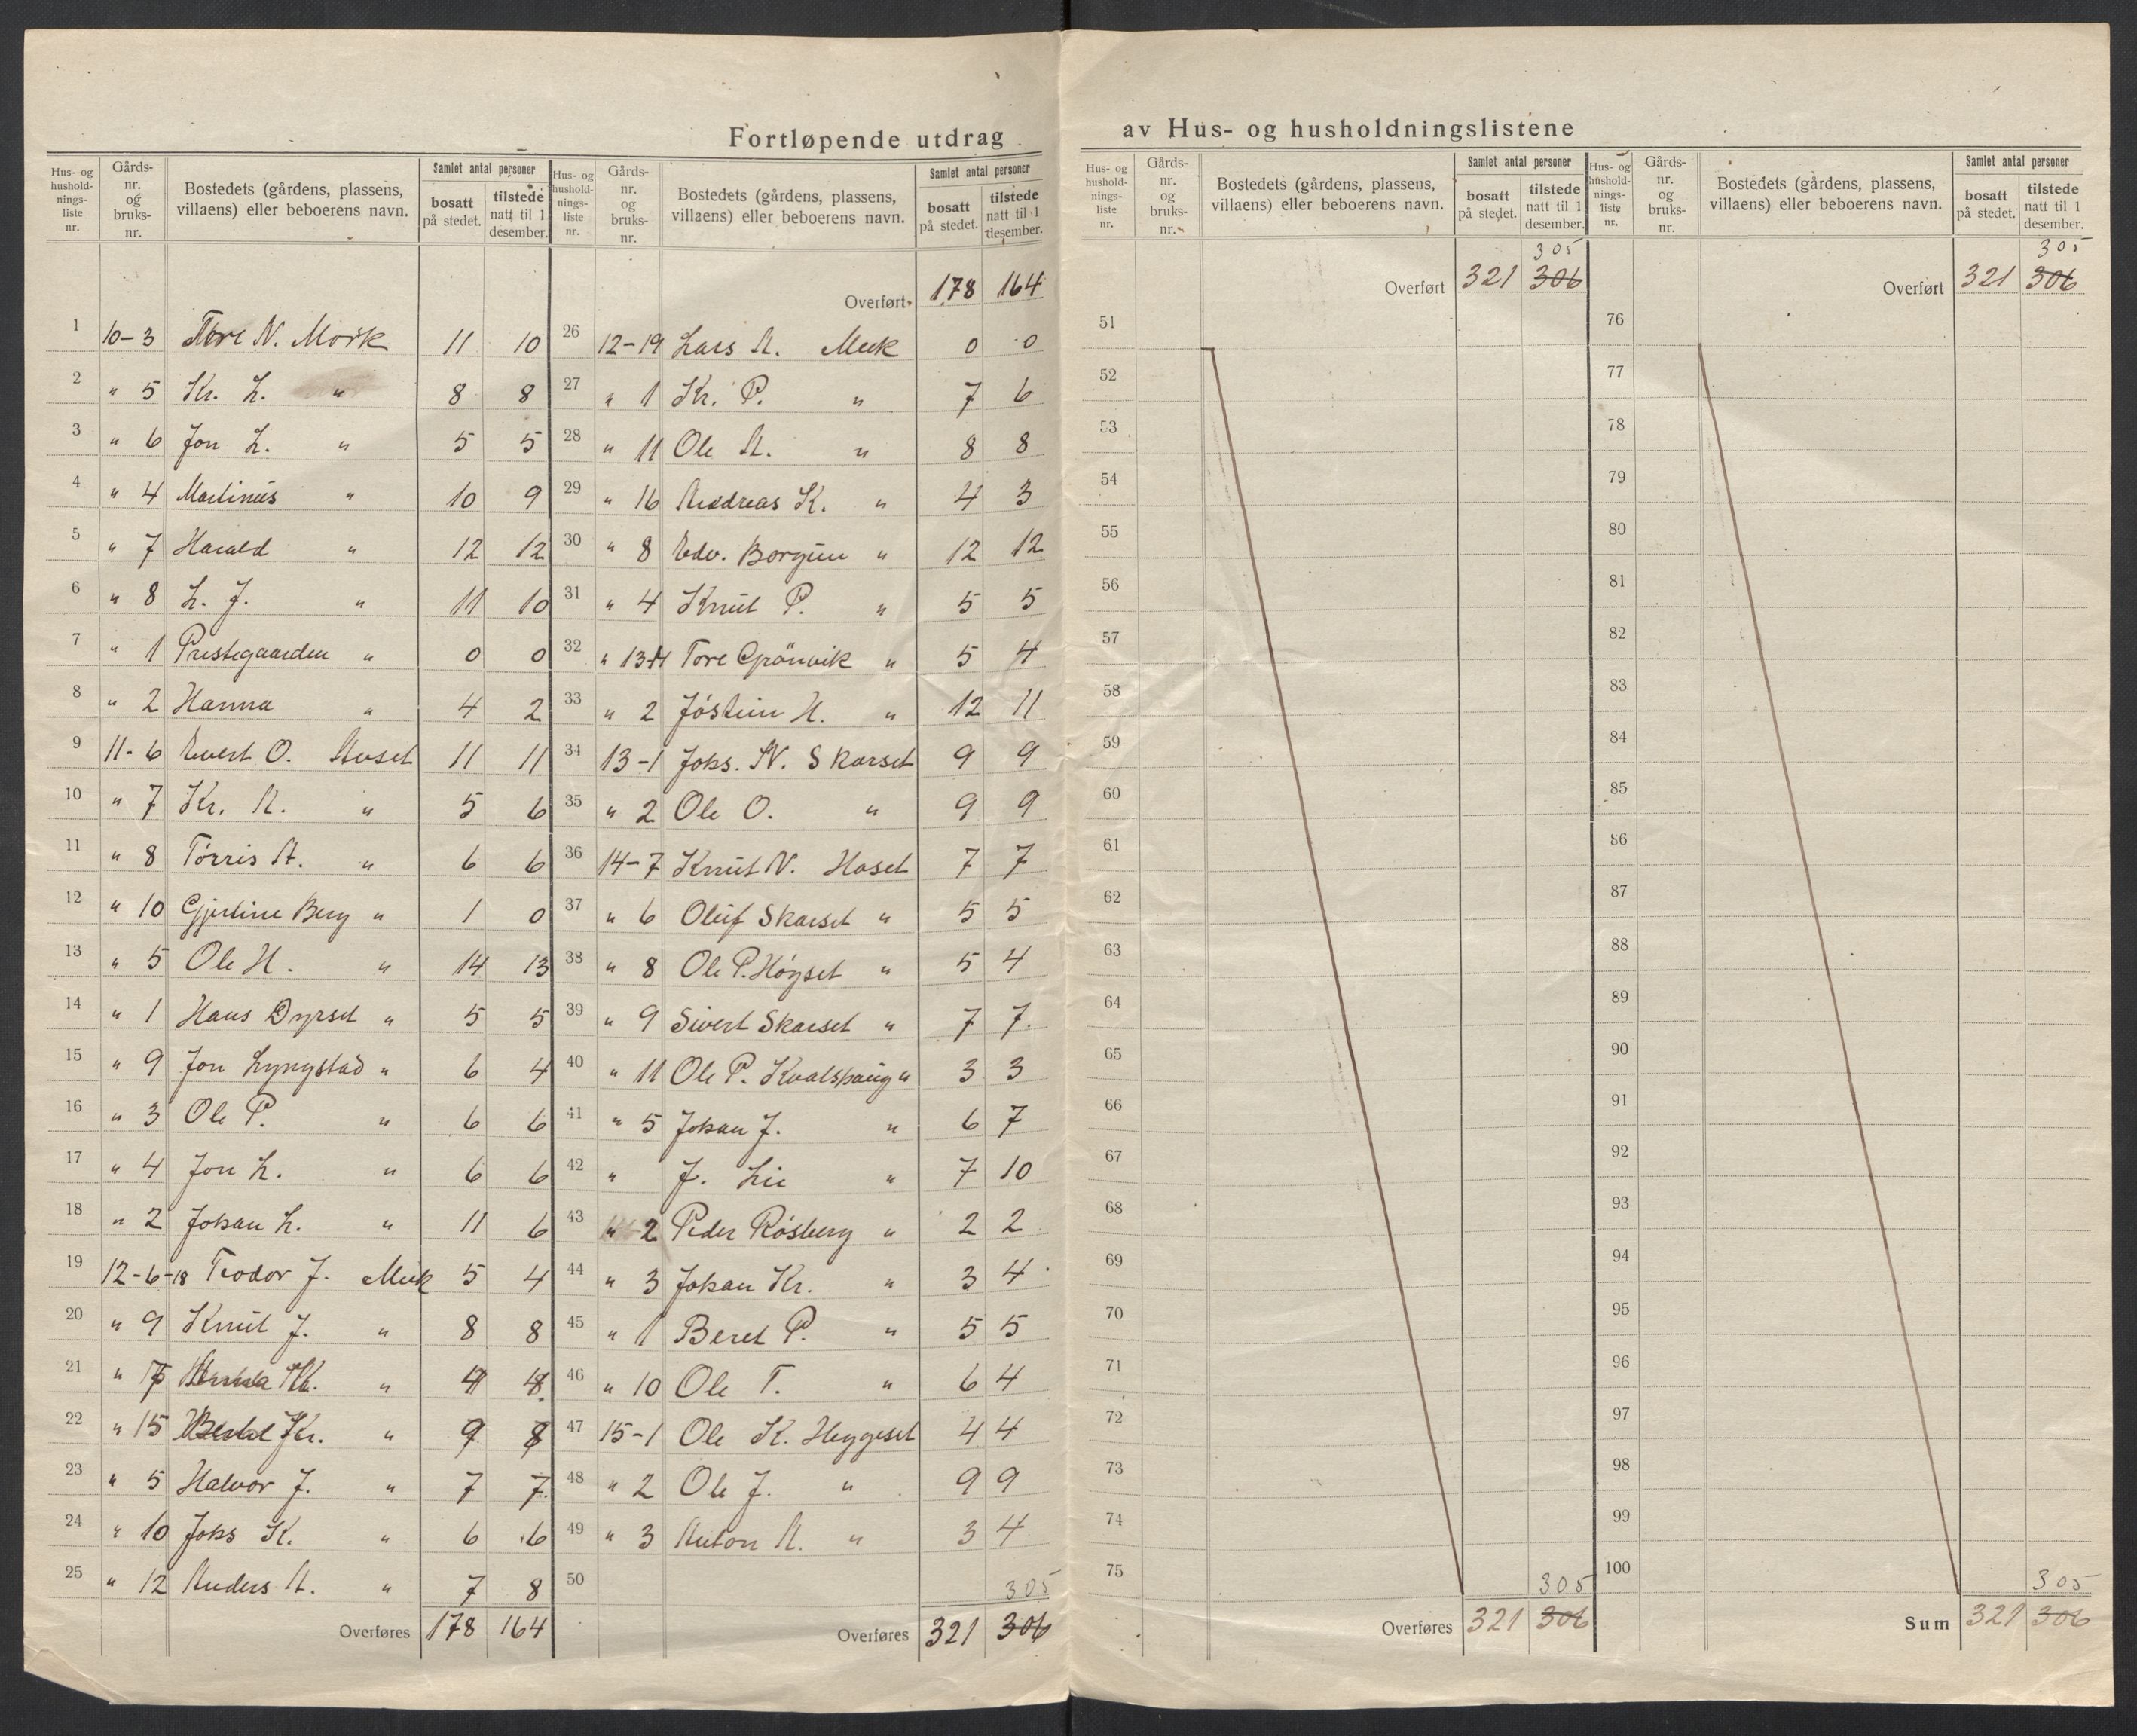 Fortløpende utdrag av Hus- og husholdningslistene
Hus- og hushold-nings-liste nr. | Gårds-nr. og bruks-nr. | Bostedets (gårdens, plassens, villaens) eller beboerens navn. | Samlet antal personer | bosatt på stedet. | tilstede natt til 1 desember.
1 10-3 Tore N. Mork 11 10
2 " 5 Kr. L. " 8 8
3 " 6 Jon L. " 5 5
4 " 4 Martinus " 10 9
5 " 7 Harald " 12 12
6 " 8 L. J. " 11 10
7 " 1 Prestegaarden " 0 0
8 " 2 Hanna " 4 2
9 11-6 Evert O. Aaset 11 11
10 " 7 Kr. A. " 5 6
11 " 8 Torris A. " 6 6
12 " 10 Gjertine Berg " 1 0
13 " 5 Ole H. " 14 13
14 " 1 Hans Dyrset " 5 5
15 " 9 Jon Lyngstad " 6 4
16 " 3 Ole P. " 6 6
17 " 4 Jon L. " 6 6
18 " 2 Johan L. " 11 6
19 12-6-18 Teodor J. Meek 5 4
20 " 9 Knut J. " 8 8
21 " "
22 " 15 Kr. " 9 8
23 " 5 Halvor J. " 7 7
24 " 10 Johs K. " 6 6
25 " 12 Anders A. " 7 8
Overføres 178 164
Hus- og hushold-nings-liste nr. | Gårds-nr. og bruks-nr. | Bostedets (gårdens, plassens, villaens) eller beboerens navn. | Samlet antal personer | bosatt på stedet. | tilstede natt til 1 desember.
Overført 178 164
26 12-19 Lars A. Meek 0 0
27 " 1 Kr. P. " 7 6
28 " 11 Ole A. " 8 8
29 " 16 Andreas K. " 4 3
30 " 8 Edv. Borgun " 12 12
31 " 4 Knut P. " 5 5
32 " 13-14 Tore Grönvik " 5 4
33 " 2 Jóstein H. " 12 11
34 13-1 Johs. N. Skarset 9 9
35 " 2 Ole O. " 9 9
36 14-7 Knut N. Haset 7 7
37 " 6 Oluf Skarset " 5 5
38 " 8 Ole P. Höyset " 5 4
39 " 9 Sivert Skarset " 7 7
40 " 11 Ole P. Kvalshaug " 3 3
41 " 5 Johan J. " 6 7
42 " J. Lie " 7 10
43 " 2 Peder Rósberg " 2 2
44 " 3 Johan Kr. " 3 4
45 " 1 Beret P. " 5 5
46 " 10 Ole T. " 6 4
47 15-1 Ole K. Heggeset 4 4
48 " 2 Ole J. " 9 9
49 " 3 Anton A. " 3 4
50
305
Overføres 321 306
Hus- og hushold-nings-liste nr. | Gårds-nr. og bruks-nr. | Bostedets (gårdens, plassens, villaens) eller beboerens navn. | Samlet antal personer | bosatt på stedet. | tilstede natt til 1 desember.
305
Overført 321 306
51
52
53
54
55
56
57
58
59
60
61
62
63
64
65
66
67
68
69
70
71
72
73
74
75
305
Overføres 321 306
Hus- og hushold-nings-liste nr. | Gårds-nr. og bruks-nr. | Bostedets (gårdens, plassens, villaens) eller beboerens navn. | Samlet antal personer | bosatt på stedet. | tilstede natt til 1 desember.
305
Overført 321 306
76
77
78
79
80
81
82
83
84
85
86
87
88
89
90
91
92
93
94
95
96
97
98
99
100
305
Sum 321 306